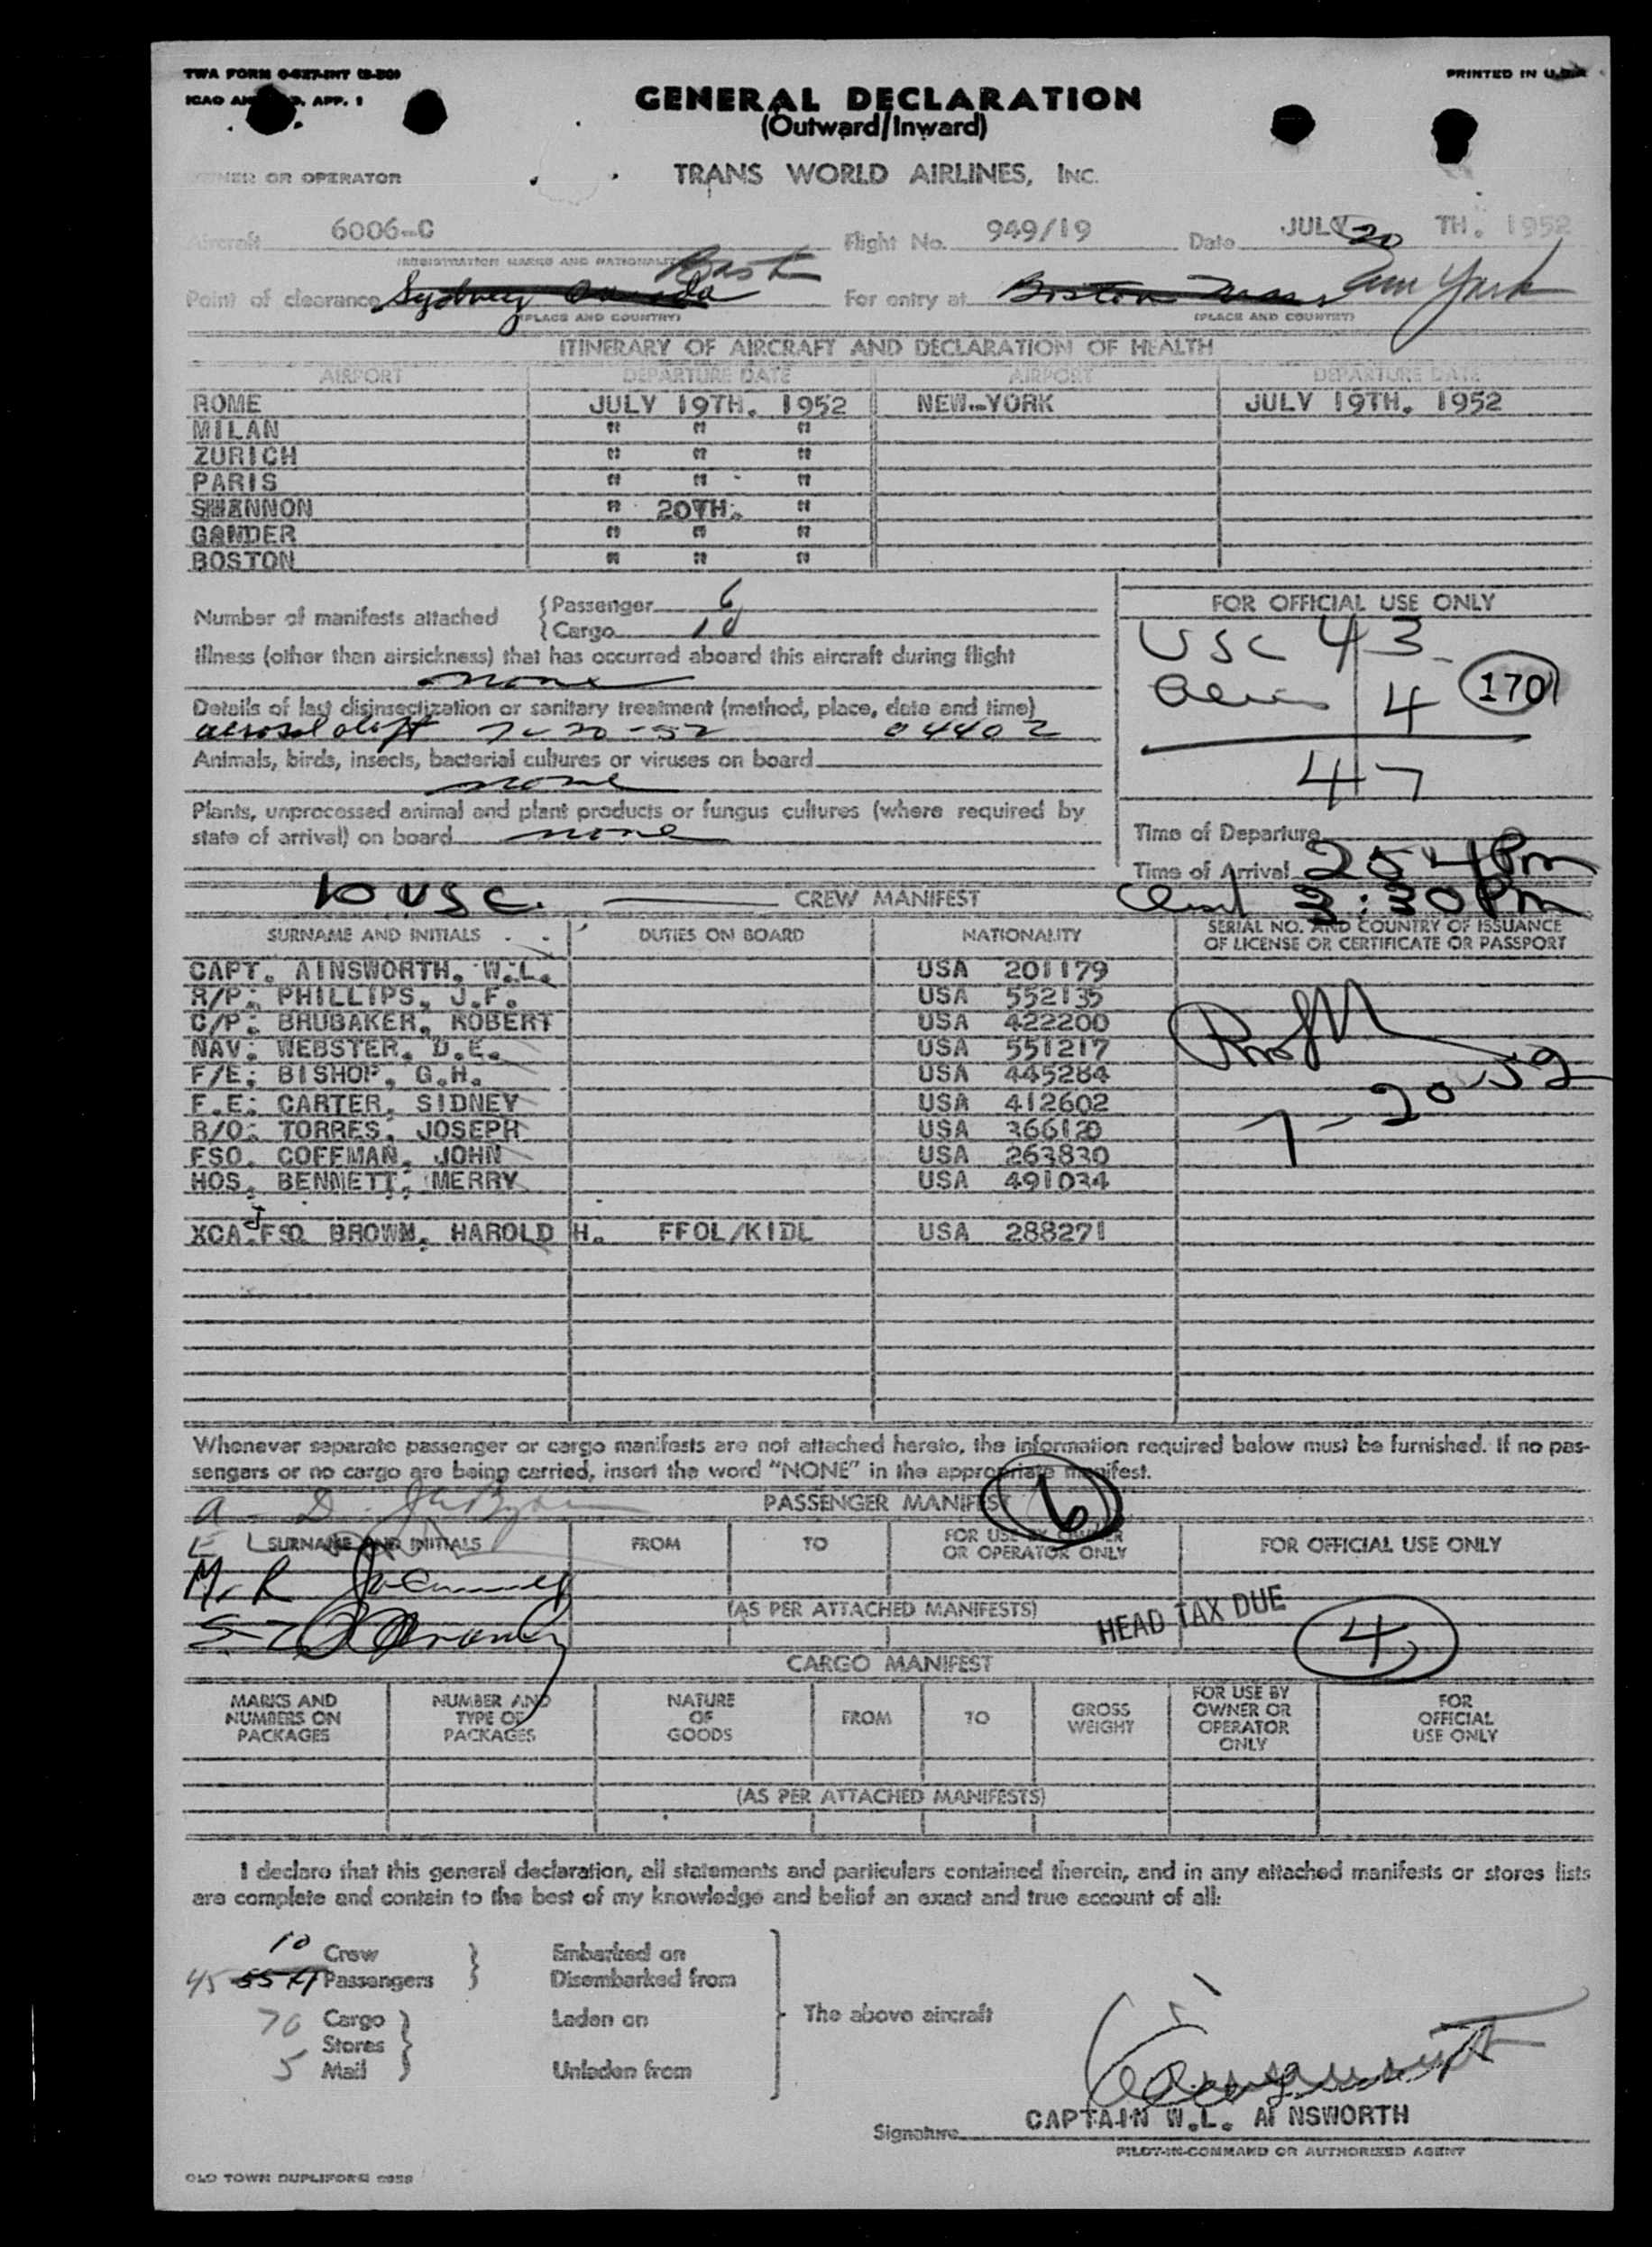 TWA FORM O-527-INT (3-50)
PRINTED IN U.S.A.
ICAO APP. 1
GENERAL DECLARATION
(Outward/Inward)
OWNER OR OPERATOR TRANS WORLD AIRLINES, INC.
Aircraft 6006-C Flight No. 949/19 Date JULY 20 TH. 1952
(REGISTRATION MARKS AND NATIONALITY)
Point of clearance Sydney Canada For entry at Boston Mass New York
(PLACE AND COUNTRY) (PLACE AND COUNTRY)
ITINERARY OF AIRCRAFT AND DECLARATION OF HEALTH
AIRPORT DEPARTURE DATE AIRPORT DEPARTURE DATE
ROME JULY 19TH. 1952 NEW-YORK JULY 19TH. 1952
MILAN " " "
ZURICH " " "
PARIS " " "
SHANNON " 20TH. "
GANDER " " "
BOSTON " " "
Number of manifests attached { Passenger 6
{ Cargo 10
Illness (other than airsickness) that has occurred aboard this aircraft during flight
none
Details of last disinsectization or sanitary treatment (method, place, date and time)
aerosol 7-20-52 0440Z
Animals, birds, insects, bacterial cultures or viruses on board
none
Plants, unprocessed animal and plant products or fungus cultures (where required by
state of arrival) on board none
FOR OFFICIAL USE ONLY
USC 43
4 170
47
Time of Departure
Time of Arrival 254 Pm
3:30 Pm
10 USC CREW MANIFEST
SURNAME AND INITIALS DUTIES ON BOARD NATIONALITY SERIAL NO. AND COUNTRY OF ISSUANCE
OF LICENSE OR CERTIFICATE OR PASSPORT
CAPT. AINSWORTH, W.L. USA 201179
R/P: PHILLIPS, J.F. USA 552135
C/P: BRUBAKER, ROBERT USA 422200
NAV: WEBSTER, D.E. USA 551217
F/E: BISHOP, G.H. USA 445284
F.E: CARTER, SIDNEY USA 412602
R/O: TORRES, JOSEPH USA 366120
FSO. COFFMAN, JOHN USA 263830
HOS: BENNETT, MERRY USA 491034
XCAJ FSO BROWN, HAROLD H. FFOL/KIDL USA 288271
7-20-52
Whenever separate passenger or cargo manifests are not attached hereto, the information required below must be furnished. If no pas-
sengers or no cargo are being carried, insert the word "NONE" in the appropriate manifest.
PASSENGER MANIFEST 6
SURNAME AND INITIALS FROM TO FOR USE BY OWNER
OR OPERATOR ONLY FOR OFFICIAL USE ONLY
(AS PER ATTACHED MANIFESTS)
HEAD TAX DUE 4
CARGO MANIFEST
MARKS AND
NUMBERS ON
PACKAGES
NUMBER AND
TYPE OF
PACKAGES
NATURE
OF
GOODS
FROM
TO
GROSS
WEIGHT
FOR USE BY
OWNER OR
OPERATOR
ONLY
FOR
OFFICIAL
USE ONLY
(AS PER ATTACHED MANIFESTS)
I declare that this general declaration, all statements and particulars contained therein, and in any attached manifests or stores lists
are complete and contain to the best of my knowledge and belief an exact and true account of all:
10 Crew Embarked on
45 Passengers Disembarked from
70 Cargo Laden on The above aircraft
Stores
5 Mail Unladen from
CAPTAIN W.L. AINSWORTH
Signature
PILOT-IN-COMMAND OR AUTHORIZED AGENT
OLD TOWN DUPLIFORM